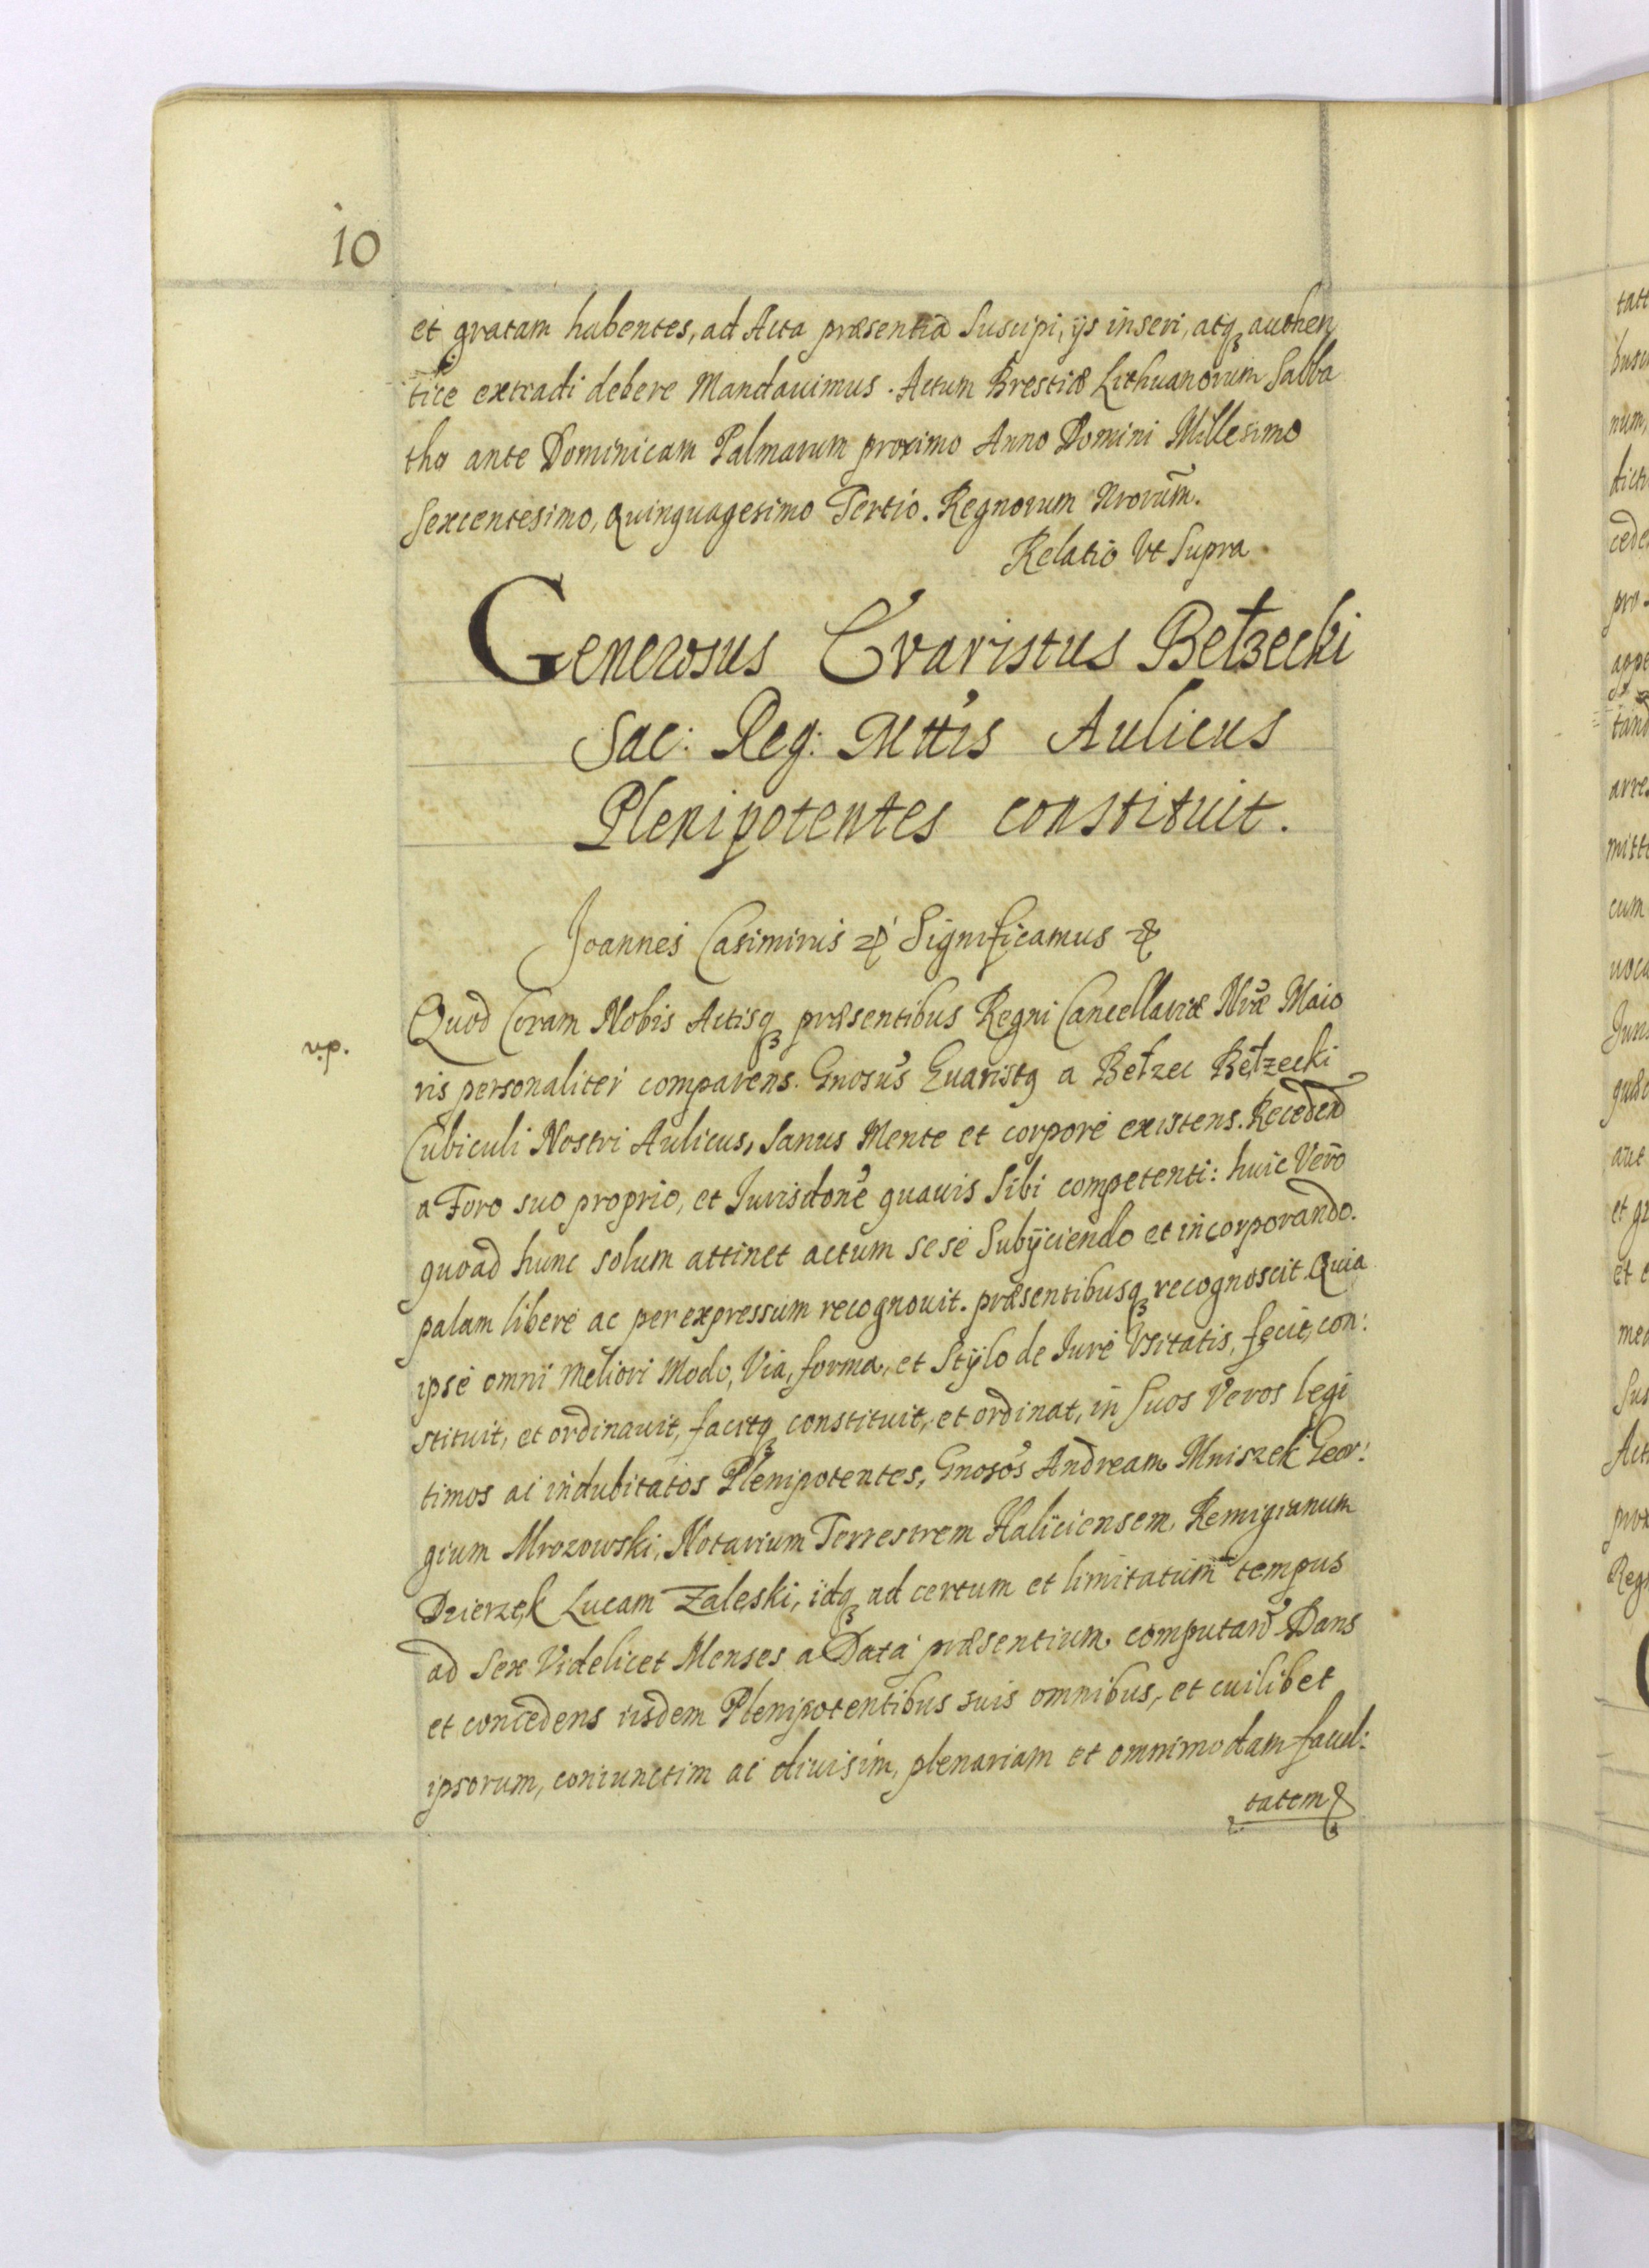 10
et gratam habentes, ad Acta præsentia Suscipi, ijs inseri, atq₃ authen
tice extradi debere Mandauimus. Actum Brestiæ Lithuanorum Sabba
tho ante Dominicam Palmarum proximo Anno Domini Millesimo
Sexcentesimo, Quinquagesimo Tertio. Regnorum Nrorum̃.
Relatio Vt Supra.
Generosus Evaristus Bełzecki
Sac: Reg: Mttis Aulicus
Plenipotentes constituit.
Joannes Casimirus & Significamus &
Quod Coram Nobis Actisq₃ præsentibus Regni Cancellariæ Nræ Maio
v.p.
ris personaliter comparens. Gnosus Euaristq a Bełzec Bełzecki
Cubiculi Nostri Aulicus, Sanus Mente et corpore existens. Recedend
a Foro suo proprio, et Jurisdone quauis Sibi competenti: huic Vero
quoad hunc solum attinet actum sese Subÿciendo et incorporando.
palam libere ac per expressum recognouit. præsentibusq₃ recognoscit Quia
ipse omni meliori Modo, Via, forma, et Stÿlo de Jure Vsitatis, fecit, con:
stituit, et ordinauit, facitq₃ constituit, et ordinat, in Suos Veros legi
timos ac indubitatos Plenipotentes, Gnosos Andream Mniszek Geor:
gium Mrozowski, Notarium Terrestrem Haliciensem, Remigianum
Dzierzek Lucam Zaleski, idq₃ ad certum et limitatum tempus
ad Sex Videlicet Menses a Data præsentium computand Dans
et concedens iisdem Plenipotentibus suis omnibus, et cuilibet
ipsorum, coniunctim ac diuisim, plenariam et omnimodam facul:
tatem